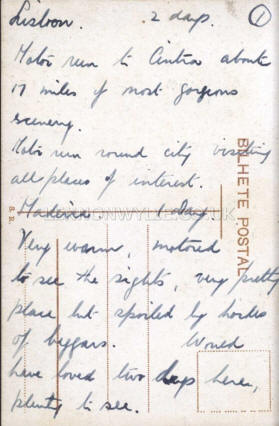 Lisbon. 2 days. 1
Motor run to Cintra about
17 miles of most gorgeous
scenery.
Motor run round city visiting
all places of interest.
Madeira 1 day
Very warm, motored
to see the sights, very pretty
place but spoiled by hordes
of beggars. Would
have loved two days here,
plenty to see.
BILHETE POSTAL
S. R.